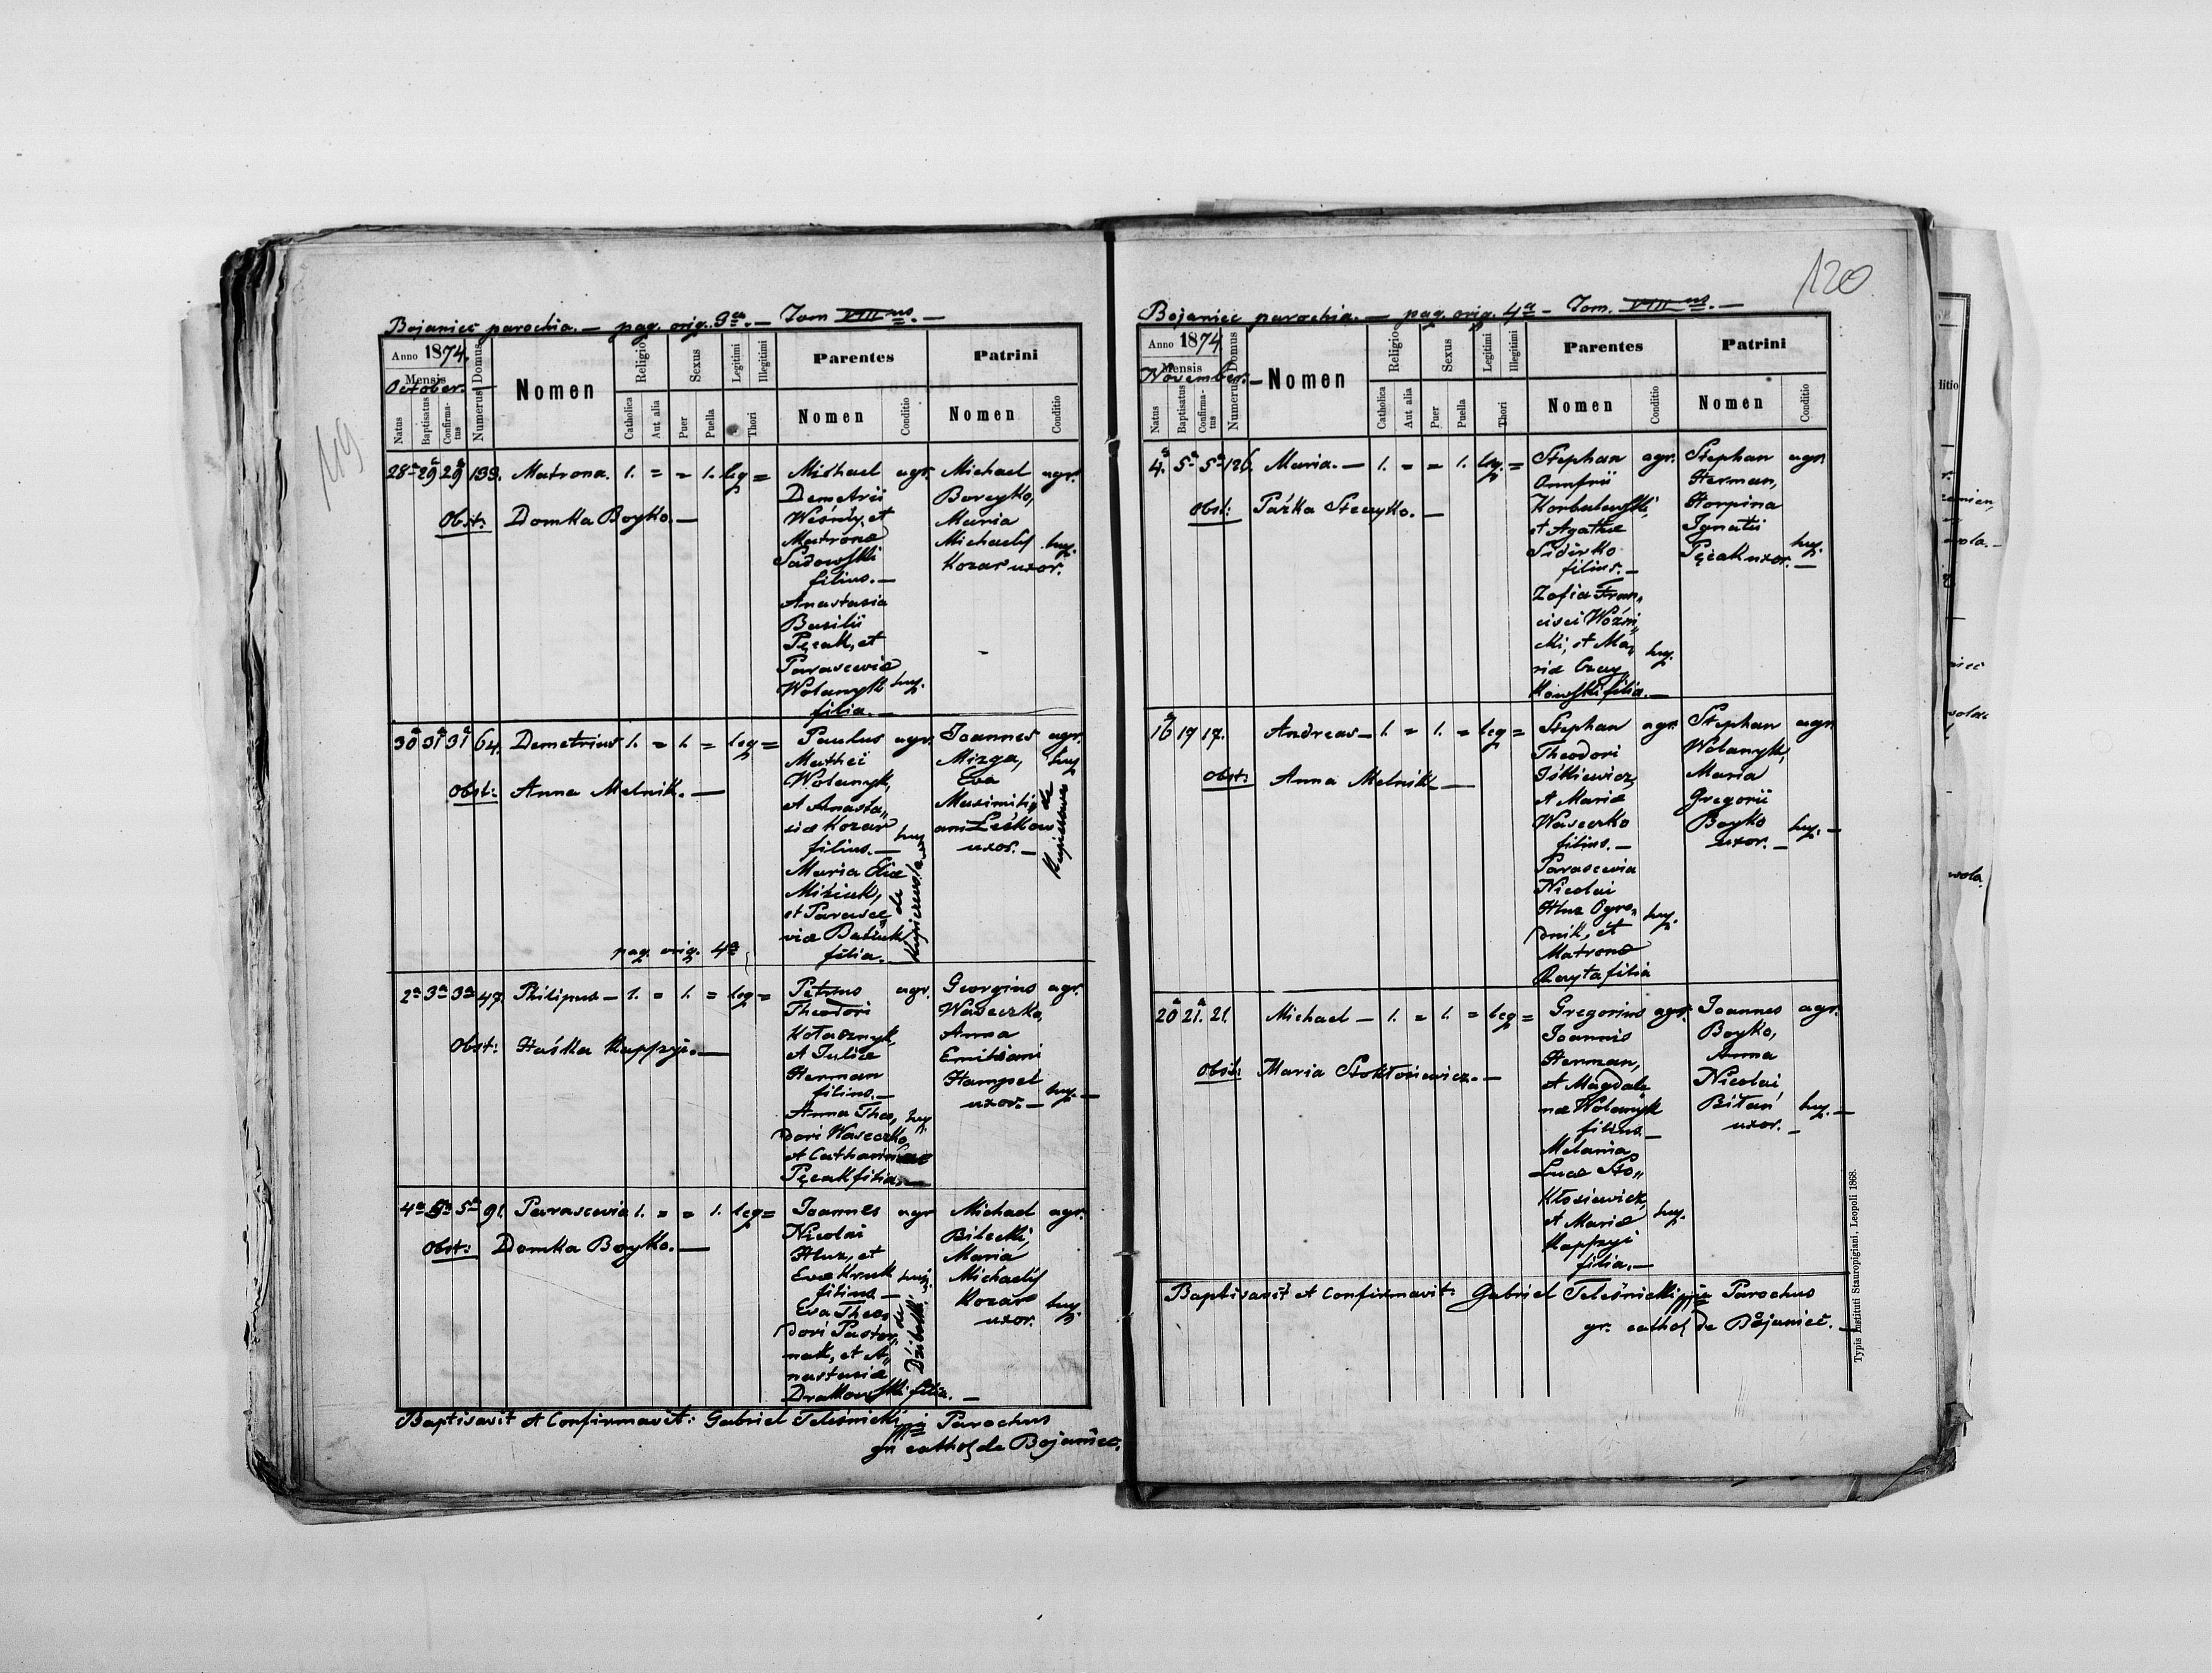 119
Bojaniec parochia. — pag. orig. 3a. — Tom VIIIus. —
Anno 1874.
Mensis
October. —
Natus
Baptisatus
Confirmatus
Numerus Domus
Nomen
Religio
Catholica
Aut alia
Sexus
Puer
Puella
Legitimi
Illegitimi
Thori
Parentes
Nomen
Conditio
Patrini
Nomen
Conditio
28a 29a 29a 133. Matrona. 1. = = 1. leg =
Obst: Domka Boyko. —
Michael agr.
Demetrii
et
Matronæ
Sadowski
filius. —
Anastasia
Basilii
Pęcak, et
Parasceviæ
Wolanyk hup.
filia. —
Michael agr.
Boreyko,
Maria
Michaelis hup.
Kozar uxor.
30a 31a 31a 64. Demetrius 1. = 1. = leg =
Obst: Anna Melnik. —
pag. orig. 4a
Paulus agr.
Mathei
Wolanyk,
et Anasta„
siæ Kozar
filius. — hup.
Maria Eliæ
et Parasce„
viæ
filia. —
Joannes agr.
Mizga, hup
Eva
Maximili„
ani Leśkow
uxor. —
2a 3a 3a 47. Philipus — 1. = 1. = leg =
Obst: Haśka Kapszyi. —
Petrus agr.
Theodori
Kołasznyk,
et Juliæ
Herman
filius. —
Anna Theo„ hup.
dori Waseczko,
et Catharinæ
Pęcak filia. —
Georgius agr.
Waseczko,
Anna
Emiliani
Hampel
uxor. — hup. —
4a 5a 5a 91. Parascevia 1. = = 1. leg =
Obst: Domka Boyko. —
Joannes agr
Nicolai
Hluz, et
Evæ Kruk hup.
filius —
Eva Theo„
dori Paster„
nak, et A„
nastasiæ
Drakowski filia. —
de Dzibulki.
Michael agr.
Bilecki,
Maria
Michaelis
Kozar hup.
uxor.
Baptisavit et Confirmavit: Gabriel Teleśnicki mpia Parochus
gr. cathol. de Bojaniec.
120
Bojaniec parochia. — pag. orig. 4a — Tom. VIIIus. —
Anno 1874
Mensis
November. —
Natus
Baptisatus
Confirmatus
Numerus Domus
Nomen
Religio
Catholica
Aut alia
Sexus
Puer
Puella
Legitimi
Illegitimi
Thori
Parentes
Nomen
Conditio
Patrini
Nomen
Conditio
4.a 5a 5a 126. Maria. — 1. = = 1. leg. =
Obst: Pazka Steczko. —
Stephan agr.
Onufrii
et Agathæ
Sidirko
filius. —
Zofia Fran„
cisci Woźni„
cki, et Ma„
riæ Czay„ hup.
kowski filia. —
Stephan agr.
Herman,
Horpina
Ignatii
Pęcak uxor. — hup.
16a 17 17. Andreas — 1. = 1. = leg =
Obst: Anna Melnik —
Stephan agr.
Theodori
Iśkiewicz,
et Mariæ
Waseczko
filius. —
Parascevia
Nicolai
Hluz Ogro„ hup.
dnik, et
Matronæ
Rayta filia
Stephan agr.
Wolanyk,
Maria
Gregorii
Boyko hup. —
uxor. —
20a 21.a 21. Michael — 1. = 1. = leg =
Obst: Maria Stokłosiewicz. —
Gregorius agr.
Joannis
Herman,
et Magdale„
næ Wolanyk
filius —
Melania
Lucæ Sto„
kłosiewicz,
et Mariæ hup.
Kapszyi
filia. —
Joannes agr.
Boyko,
Anna
Nicolai
Biłań hup. —
uxor. —
Baptisavit et Confirmavit: Gabriel Teleśnicki mpia Parochus
gr. cathol. de Bojaniec. —
Typis Instituti Stauropigiani, Leopoli 1868.